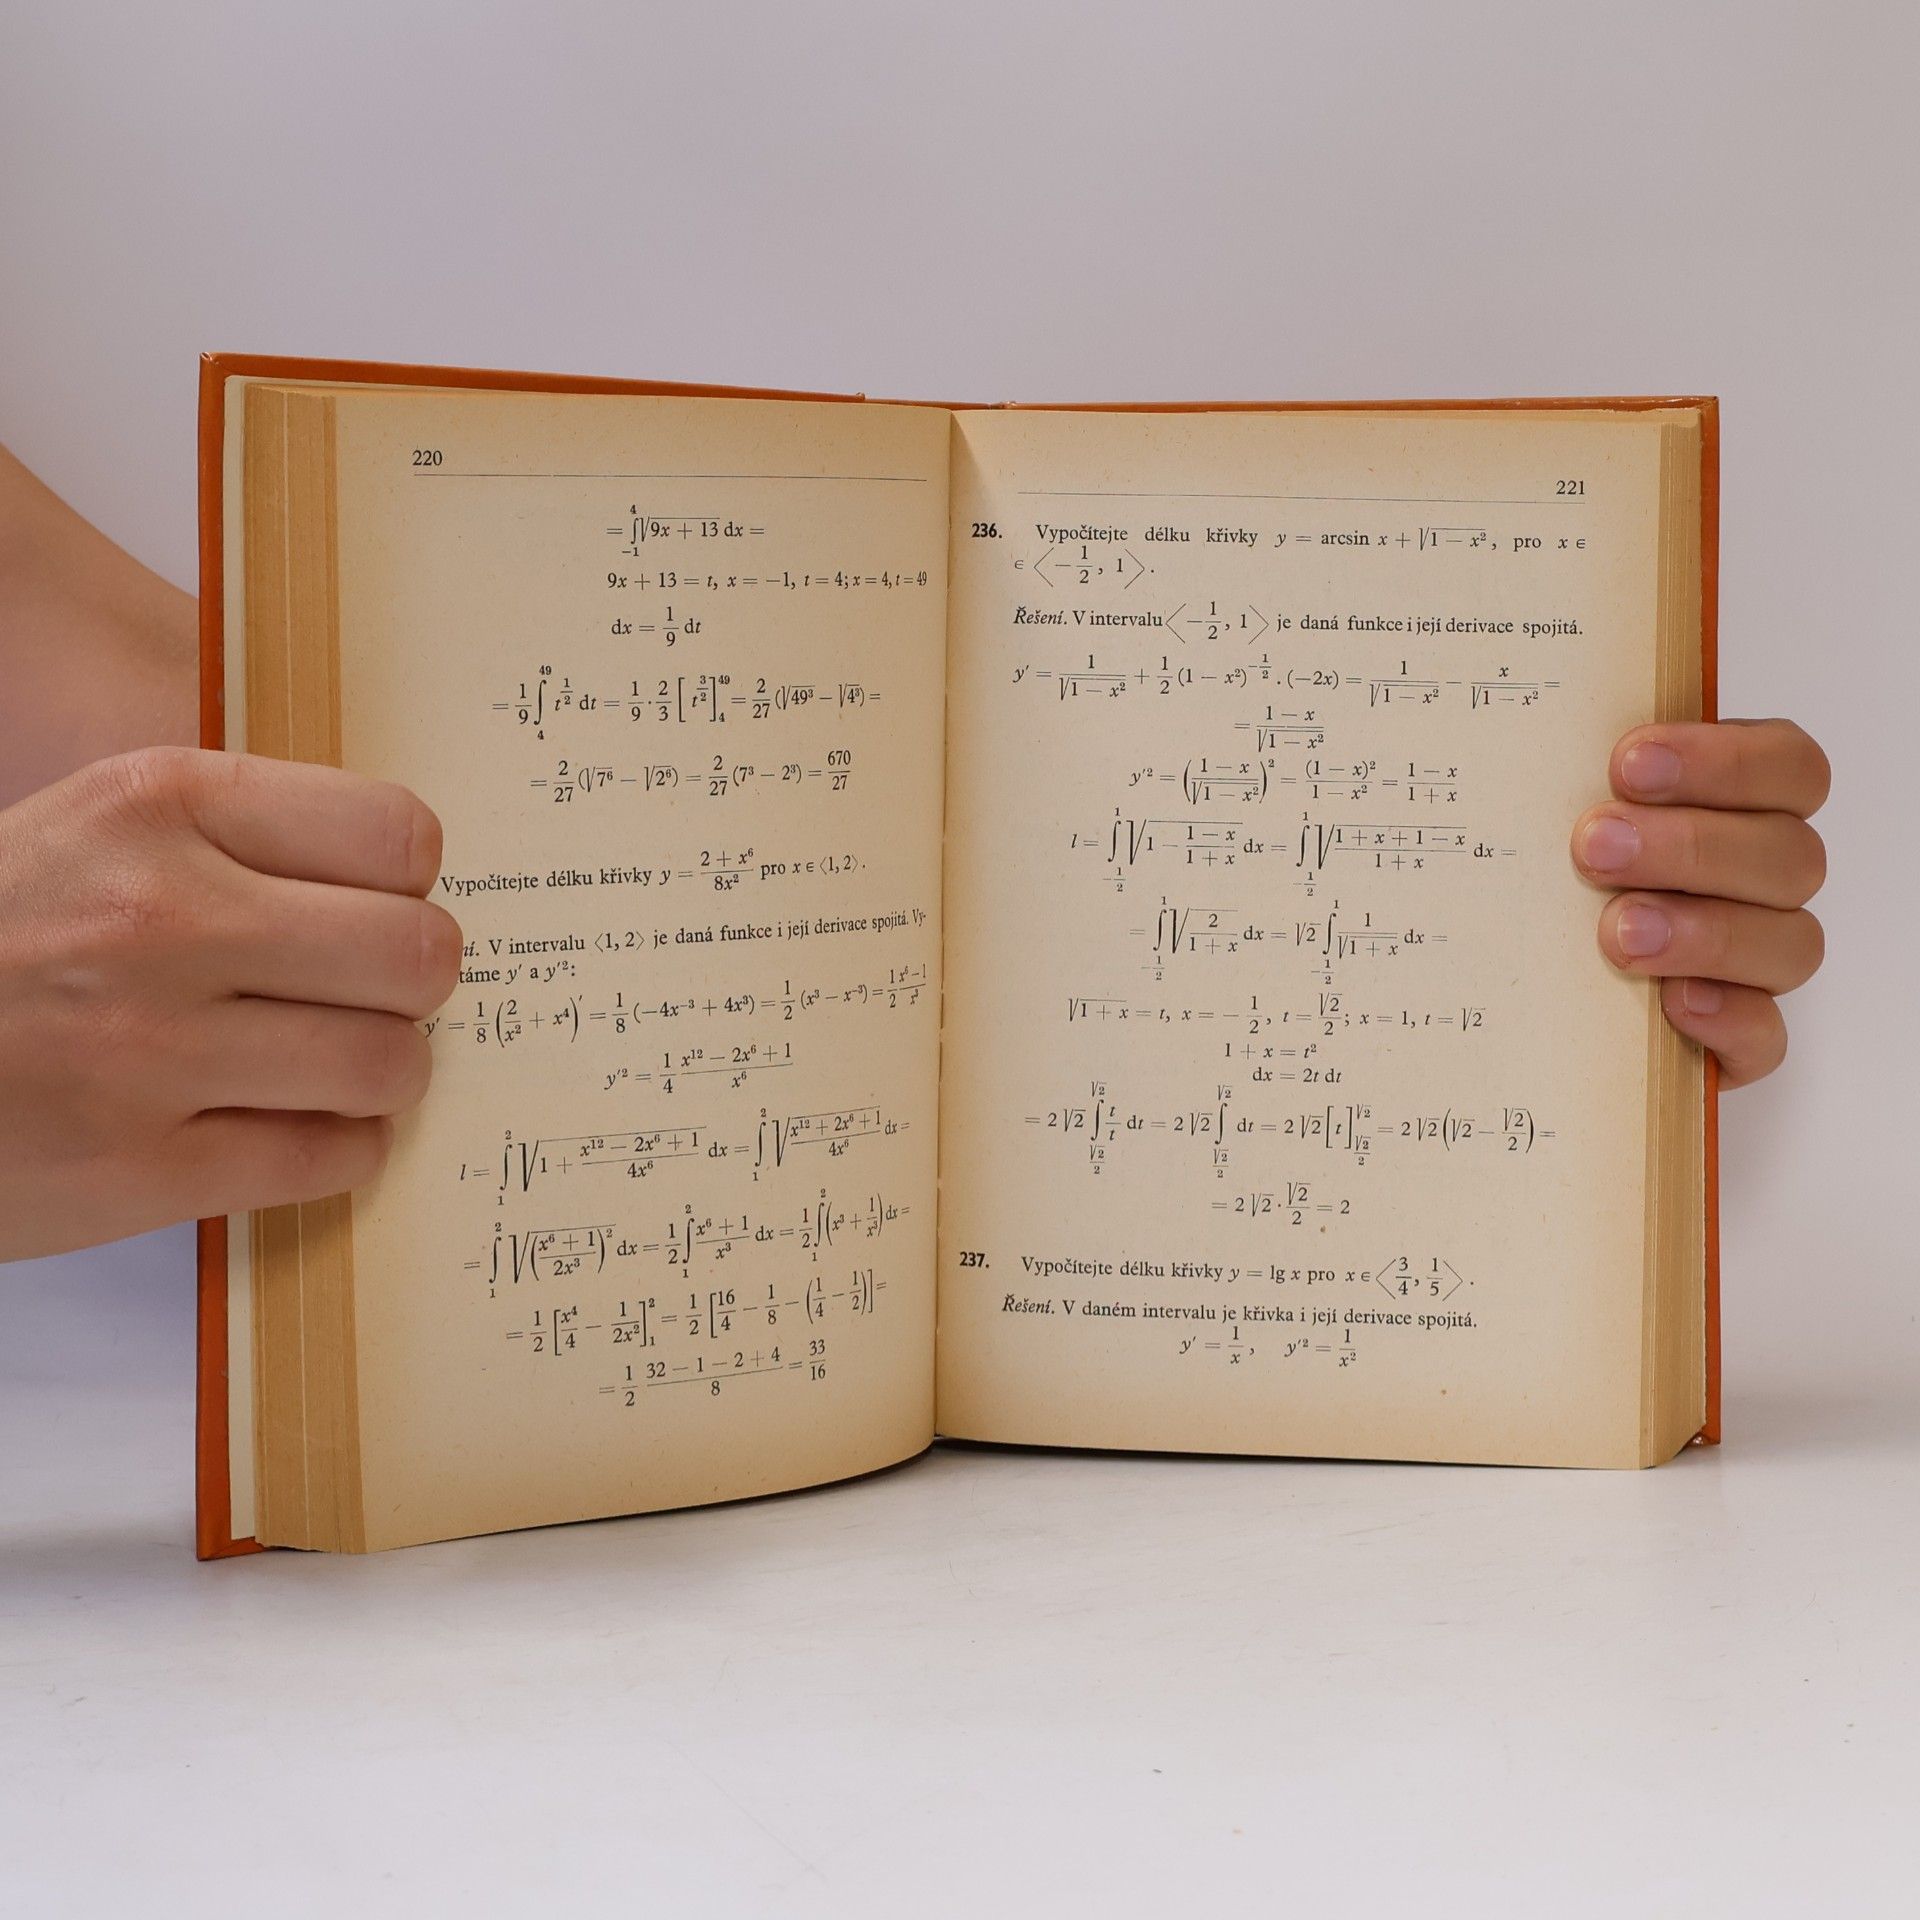 220
= ∫₋₁⁴ √(9x + 13) dx =
9x + 13 = t, x = −1, t = 4; x = 4, t = 49
dx = 1/9 dt
= 1/9 ∫₄⁴⁹ t^(1/2) dt = 1/9 · 2/3 [t^(3/2)]₄⁴⁹ = 2/27 (√49³ − √4³) =
= 2/27 (√7⁶ − √2⁶) = 2/27 (7³ − 2³) = 670/27
Vypočítejte délku křivky y = (2 + x⁶)/(8x²) pro x ∈ ⟨1, 2⟩.
V intervalu ⟨1, 2⟩ je daná funkce i její derivace spojitá. Vy-
táme y′ a y′²:
y′ = 1/8 (2/x² + x⁴)′ = 1/8 (−4x⁻³ + 4x³) = 1/2 (x³ − x⁻³) = 1/2 (x⁶ − 1)/x³
y′² = 1/4 (x¹² − 2x⁶ + 1)/x⁶
l = ∫₁² √(1 + (x¹² − 2x⁶ + 1)/(4x⁶)) dx = ∫₁² √((x¹² + 2x⁶ + 1)/(4x⁶)) dx =
= ∫₁² √(((x⁶ + 1)/(2x³))²) dx = 1/2 ∫₁² (x⁶ + 1)/x³ dx = 1/2 ∫₁² (x³ + 1/x³) dx =
= 1/2 [x⁴/4 − 1/(2x²)]₁² = 1/2 [16/4 − 1/8 − (1/4 − 1/2)] =
= 1/2 (32 − 1 − 2 + 4)/8 = 33/16
221
236. Vypočítejte délku křivky y = arcsin x + √(1 − x²), pro x ∈
∈ ⟨−1/2, 1⟩.
Řešení. V intervalu ⟨−1/2, 1⟩ je daná funkce i její derivace spojitá.
y′ = 1/√(1 − x²) + 1/2 (1 − x²)^(−1/2) . (−2x) = 1/√(1 − x²) − x/√(1 − x²) =
= (1 − x)/√(1 − x²)
y′² = ((1 − x)/√(1 − x²))² = (1 − x)²/(1 − x²) = (1 − x)/(1 + x)
l = ∫₋₁/₂¹ √(1 − (1 − x)/(1 + x)) dx = ∫₋₁/₂¹ √((1 + x + 1 − x)/(1 + x)) dx =
= ∫₋₁/₂¹ √(2/(1 + x)) dx = √2 ∫₋₁/₂¹ 1/√(1 + x) dx =
√(1 + x) = t, x = −1/2, t = √2/2; x = 1, t = √2
1 + x = t²
dx = 2t dt
= 2√2 ∫_(√2/2)^(√2) t/t dt = 2√2 ∫_(√2/2)^(√2) dt = 2√2 [t]_(√2/2)^(√2) = 2√2 (√2 − √2/2) =
= 2√2 · √2/2 = 2
237. Vypočítejte délku křivky y = lg x pro x ∈ ⟨3/4, 1/5⟩.
Řešení. V daném intervalu je křivka i její derivace spojitá.
y′ = 1/x, y′² = 1/x²